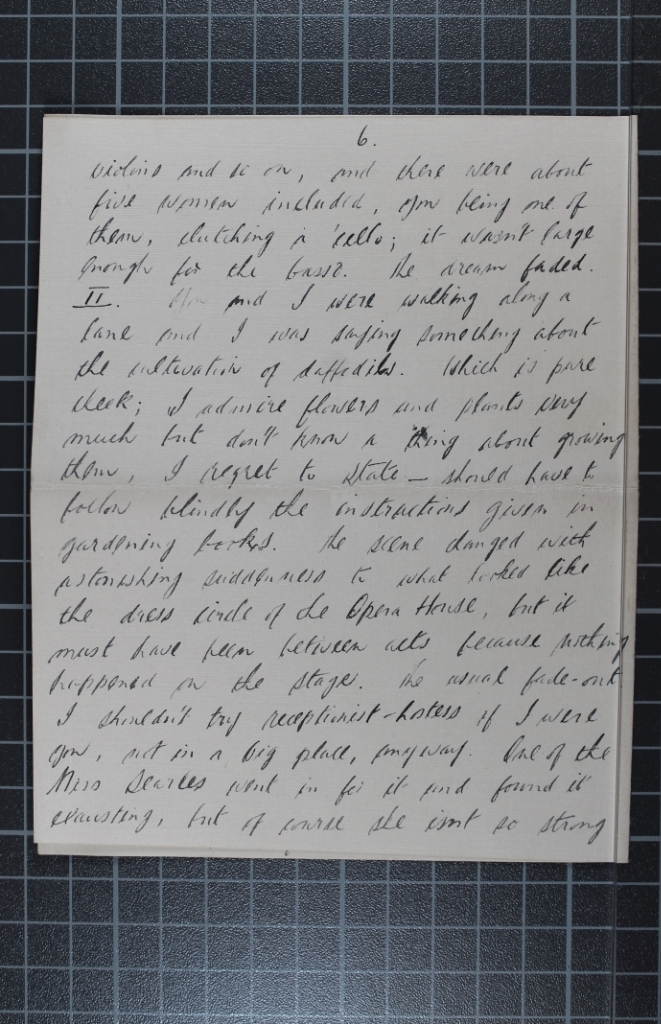 6.
violins and so on, and there were about
five women included, you being one of
them, clutching a 'cello; it wasn't large
enough for the basso. The dream faded.
II. You and I were walking along a
lane and I was saying something about
the cultivation of daffodils. Which is pure
cheek; I admire flowers and plants very
much but don't know a thing about growing
them, I regret to state — should have to
follow blindly the instructions given in
gardening books. The scene changed with
astonishing suddenness to what looked like
the dress circle of the Opera House, but it
must have been between acts because nothing
happened on the stage. The usual fade-out.
I shouldn't try receptionist-hostess if I were
you, not in a big place, anyway. One of the
Miss Searles went in for it and found it
exausting, but of course she isn't so strong